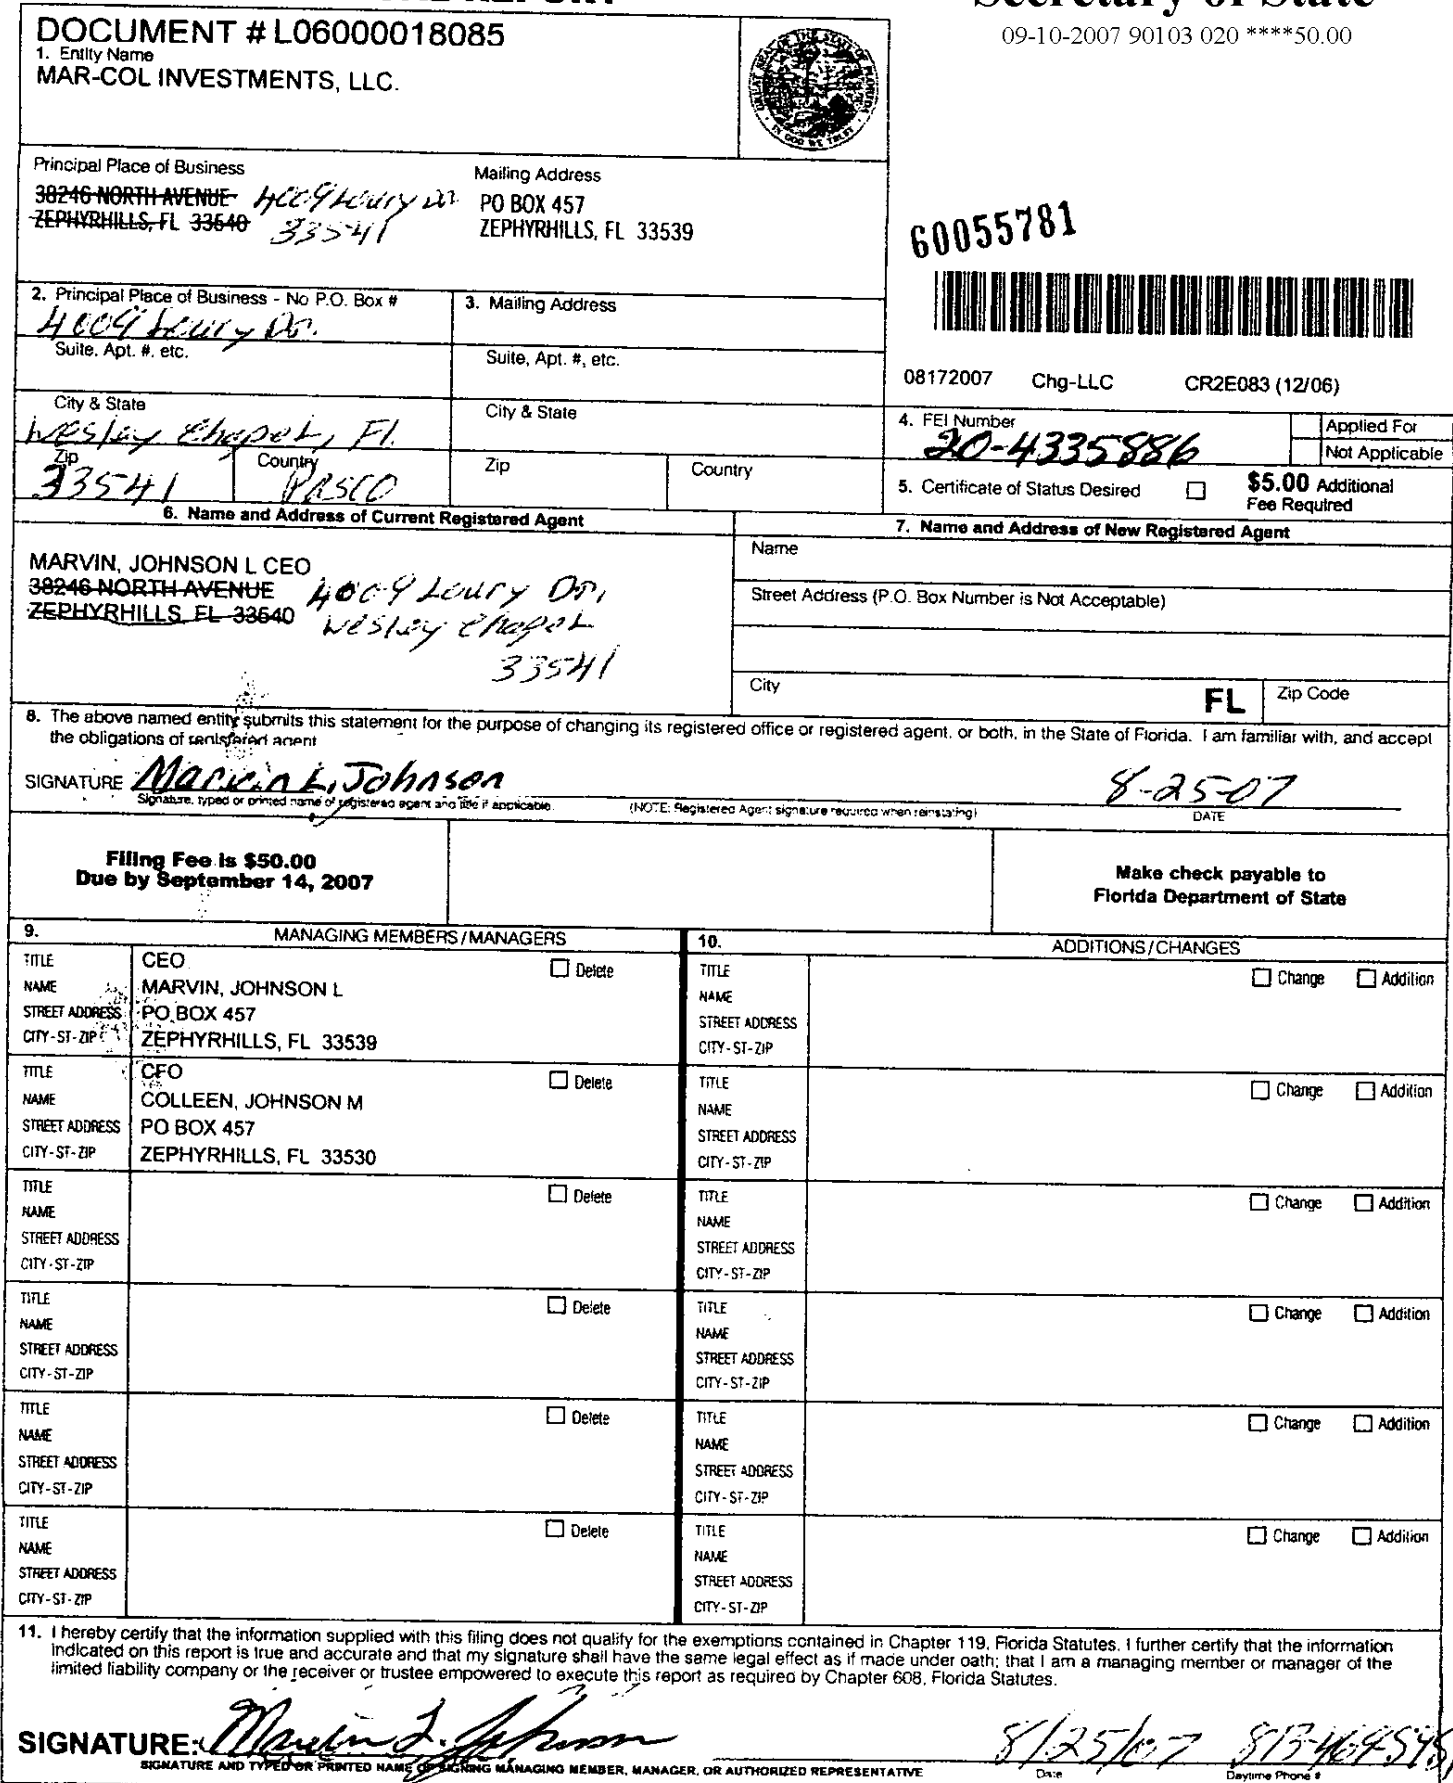 DOCUMENT # L06000018085
1. Entity Name
MAR-COL INVESTMENTS, LLC.
Secretary of State
09-10-2007 90103 020 ****50.00
Principal Place of Business
38246 NORTH AVENUE 4009 Loury Dr
ZEPHYRHILLS, FL 33540 33541
Mailing Address
PO BOX 457
ZEPHYRHILLS, FL 33539
60055781
2. Principal Place of Business - No P.O. Box #
4009 Loury Dr.
Suite, Apt. #, etc.
City & State
Wesley Chapel, Fl.
Zip
33541
Country
PASCO
3. Mailing Address
Suite, Apt. #, etc.
City & State
Zip
Country
08172007 Chg-LLC CR2E083 (12/06)
4. FEI Number
20-4335886
Applied For
Not Applicable
5. Certificate of Status Desired
$5.00 Additional
Fee Required
6. Name and Address of Current Registered Agent
MARVIN, JOHNSON L CEO
38246 NORTH AVENUE 4009 Loury Dr,
ZEPHYRHILLS, FL 33540 Wesley Chapel
33541
7. Name and Address of New Registered Agent
Name
Street Address (P.O. Box Number is Not Acceptable)
City
FL
Zip Code
8. The above named entity submits this statement for the purpose of changing its registered office or registered agent, or both, in the State of Florida. I am familiar with, and accept
the obligations of registered agent
SIGNATURE Marvin L. Johnson 8-25-07
Signature, typed or printed name of registered agent and title if applicable. (NOTE: Registered Agent signature required when reinstating) DATE
Filing Fee is $50.00
Due by September 14, 2007
Make check payable to
Florida Department of State
9. MANAGING MEMBERS/MANAGERS
TITLE CEO Delete
NAME MARVIN, JOHNSON L
STREET ADDRESS PO BOX 457
CITY-ST-ZIP ZEPHYRHILLS, FL 33539
TITLE CFO Delete
NAME COLLEEN, JOHNSON M
STREET ADDRESS PO BOX 457
CITY-ST-ZIP ZEPHYRHILLS, FL 33530
TITLE Delete
NAME
STREET ADDRESS
CITY-ST-ZIP
TITLE Delete
NAME
STREET ADDRESS
CITY-ST-ZIP
TITLE Delete
NAME
STREET ADDRESS
CITY-ST-ZIP
TITLE Delete
NAME
STREET ADDRESS
CITY-ST-ZIP
10. ADDITIONS/CHANGES
TITLE Change Addition
NAME
STREET ADDRESS
CITY-ST-ZIP
TITLE Change Addition
NAME
STREET ADDRESS
CITY-ST-ZIP
TITLE Change Addition
NAME
STREET ADDRESS
CITY-ST-ZIP
TITLE Change Addition
NAME
STREET ADDRESS
CITY-ST-ZIP
TITLE Change Addition
NAME
STREET ADDRESS
CITY-ST-ZIP
TITLE Change Addition
NAME
STREET ADDRESS
CITY-ST-ZIP
11. I hereby certify that the information supplied with this filing does not qualify for the exemptions contained in Chapter 119, Florida Statutes. I further certify that the information
indicated on this report is true and accurate and that my signature shall have the same legal effect as if made under oath; that I am a managing member or manager of the
limited liability company or the receiver or trustee empowered to execute this report as required by Chapter 608, Florida Statutes.
SIGNATURE: Marvin L. Johnson 8/25/07
SIGNATURE AND TYPED OR PRINTED NAME OF SIGNING MANAGING MEMBER, MANAGER, OR AUTHORIZED REPRESENTATIVE Date Daytime Phone #